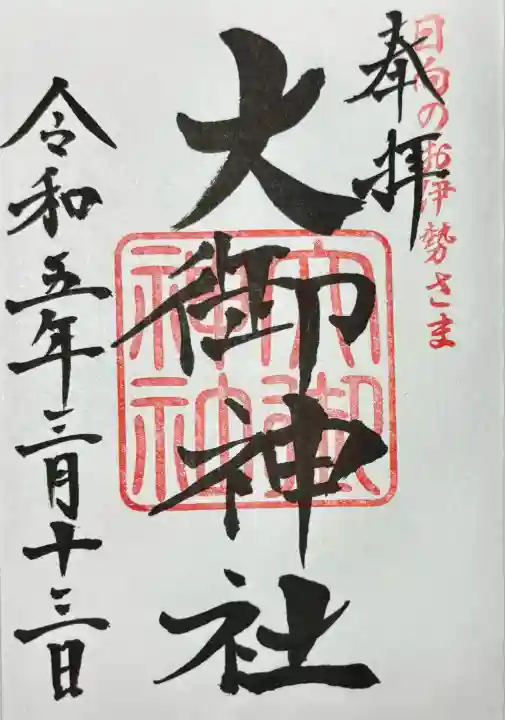 日向のお伊勢さま
奉拝
大御神社
大御
神社
令和五年三月十三日